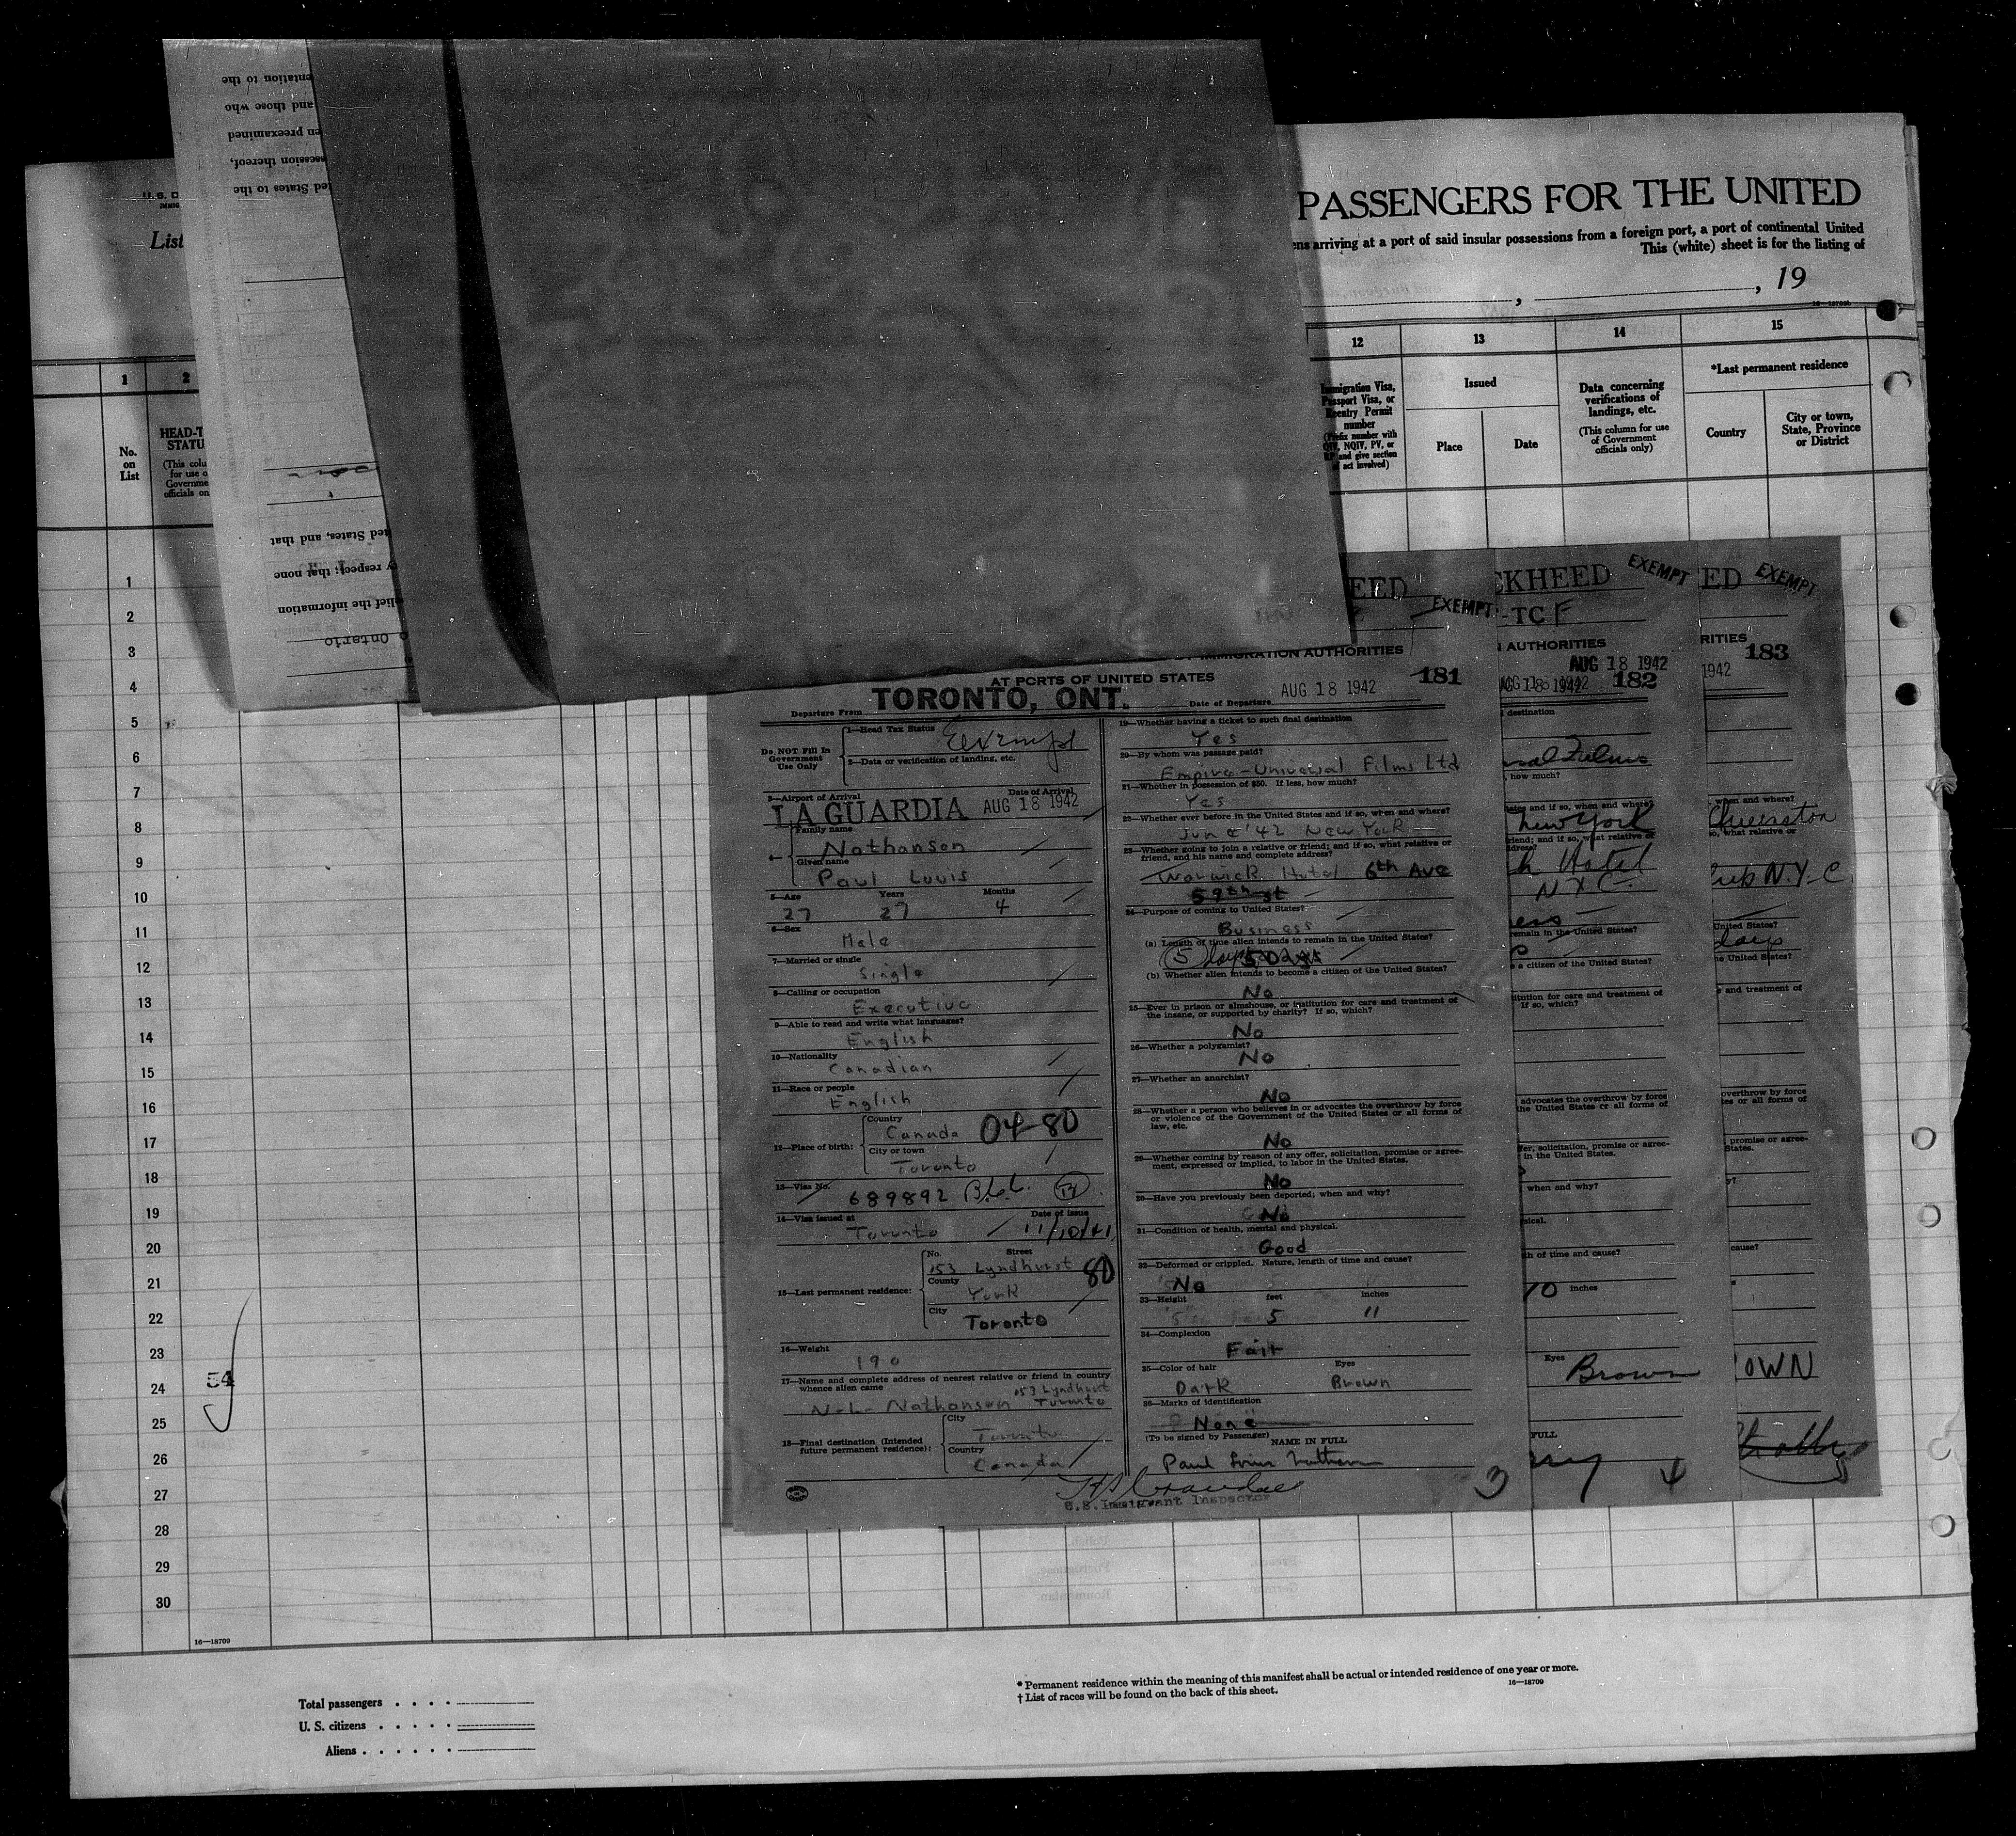 PASSENGERS FOR THE UNITED
ens arriving at a port of said insular possessions from a foreign port, a port of continental United
This (white) sheet is for the listing of
, , 19
U. S. D
List
entation to the
and those who
en preexamined
ssession thereof,
ted States to the
ted States, and that
y respect; that none
elief the information
o Ontario
1
2
No.
on
List
HEAD-T
STATU
(This colu
for use o
Governme
officials on
12
13
14
15
Immigration Visa,
Passport Visa, or
Reentry Permit
number
(Prefix number with
QIV, NQIV, PV, or
RP and give section
of act involved)
Issued
Place
Date
Data concerning
verifications of
landings, etc.
(This column for use
of Government
officials only)
*Last permanent residence
Country
City or town,
State, Province
or District
1
2
3
4
5
6
7
8
9
10
11
12
13
14
15
16
17
18
19
20
21
22
23
24
25
26
27
28
29
30
54
EED
EXEMPT
IMMIGRATION AUTHORITIES
AT PORTS OF UNITED STATES
181
Departure From TORONTO, ONT.
Date of Departure AUG 18 1942
Do NOT Fill In
Government
Use Only
1—Head Tax Status
Exempt
2—Data or verification of landing, etc.
3—Airport of Arrival
Date of Arrival
LA GUARDIA AUG 18 1942
4—
Family name
Nathanson
Given name
Paul Louis
5—Age Years Months
27 27 4
6—Sex
Male
7—Married or single
Single
8—Calling or occupation
Executive
9—Able to read and write what languages?
English
10—Nationality
Canadian
11—Race or people
English
12—Place of birth:
Country
Canada 04-80
City or town
Toronto
13—Visa No.
689892 B.C.C.
14—Visa issued at
Date of issue
Toronto 11/10/41
15—Last permanent residence:
No. Street
153 Lyndhurst 80
County
York
City
Toronto
16—Weight
190
17—Name and complete address of nearest relative or friend in country
whence alien came
153 Lyndhurst
N-L- Nathanson Toronto
18—Final destination (Intended
future permanent residence):
City
Toronto
Country
Canada
19—Whether having a ticket to such final destination
Yes
20—By whom was passage paid?
Empire-Universal Films Ltd
21—Whether in possession of $50. If less, how much?
Yes
22—Whether ever before in the United States and if so, when and where?
June '42 New York
23—Whether going to join a relative or friend; and if so, what relative or
friend, and his name and complete address?
Warwick Hotel 6th Ave
59th st
24—Purpose of coming to United States?
Business
(a) Length of time alien intends to remain in the United States?
5 days 5 Days
(b) Whether alien intends to become a citizen of the United States?
No
25—Ever in prison or almshouse, or institution for care and treatment of
the insane, or supported by charity? If so, which?
No
26—Whether a polygamist?
No
27—Whether an anarchist?
No
28—Whether a person who believes in or advocates the overthrow by force
or violence of the Government of the United States or all forms of
law, etc.
No
29—Whether coming by reason of any offer, solicitation, promise or agree-
ment, expressed or implied, to labor in the United States.
No
30—Have you previously been deported; when and why?
No
31—Condition of health, mental and physical.
Good
32—Deformed or crippled. Nature, length of time and cause?
No
33—Height feet inches
5 11
34—Complexion
Fair
35—Color of hair Eyes
Dark Brown
36—Marks of identification
None
(To be signed by Passenger) NAME IN FULL
Paul Louis Nathanson
U.S. Immigrant Inspector
3
CKHEED
EXEMPT
-TCF
AUTHORITIES
AUG 18 1942
AUG 18 1942 182
destination
sal Films
, how much?
ates and if so, when and where?
New York
riend; and if so, what relative or
ddress?
h Hotel
N.Y.C.
remain in the United States?
e a citizen of the United States?
titution for care and treatment of
If so, which?
advocates the overthrow by force
the United States or all forms of
fer, solicitation, promise or agree-
in the United States.
when and why?
sical.
th of time and cause?
10 inches
Eyes
Brown
FULL
4
ED
EXEMPT
RITIES
183
1942
when and where?
Queenston
so, what relative or
N.Y.C.
United States?
days
he United States?
e and treatment of
overthrow by force
tes or all forms of
promise or agree-
States.
y?
cause?
OWN
16—18709
Total passengers . . . .
U. S. citizens . . . . .
Aliens . . . . . .
* Permanent residence within the meaning of this manifest shall be actual or intended residence of one year or more.
† List of races will be found on the back of this sheet.
16—18709